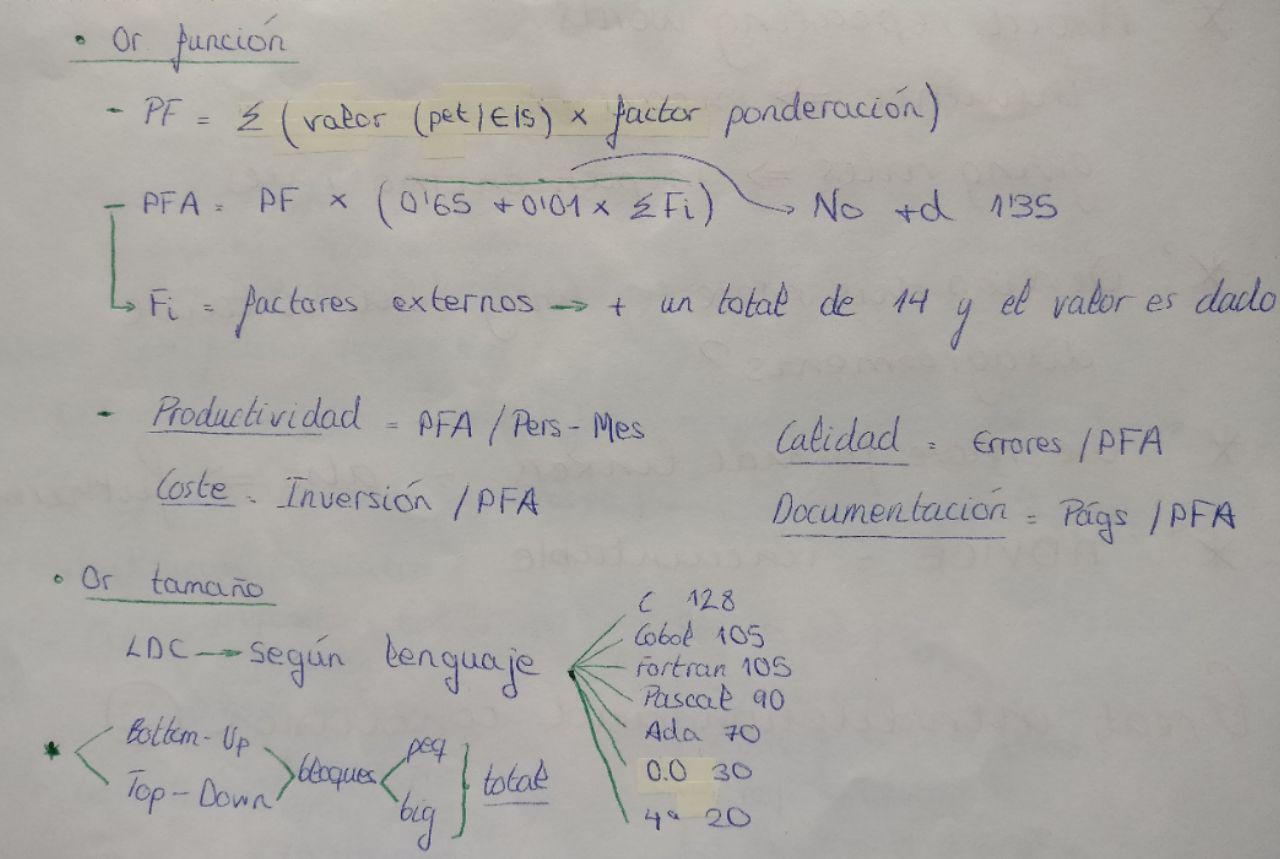 • Or función
- PF = Σ (valor (pet/E/S) × factor ponderación)
- PFA = PF × (0'65 + 0'01 × Σ Fi) → No +d 1'35
→ Fi = factores externos → + un total de 14 y el valor es dado
- Productividad = PFA / Pers-Mes
Calidad = Errores / PFA
Coste = Inversión / PFA
Documentación = Págs / PFA
• Or tamaño
LDC → según lenguaje
C 128
Cobol 105
Fortran 105
Pascal 90
Ada 70
O.O 30
4ª 20
* Bottom-Up
Top-Down
bloques
peq
big
total